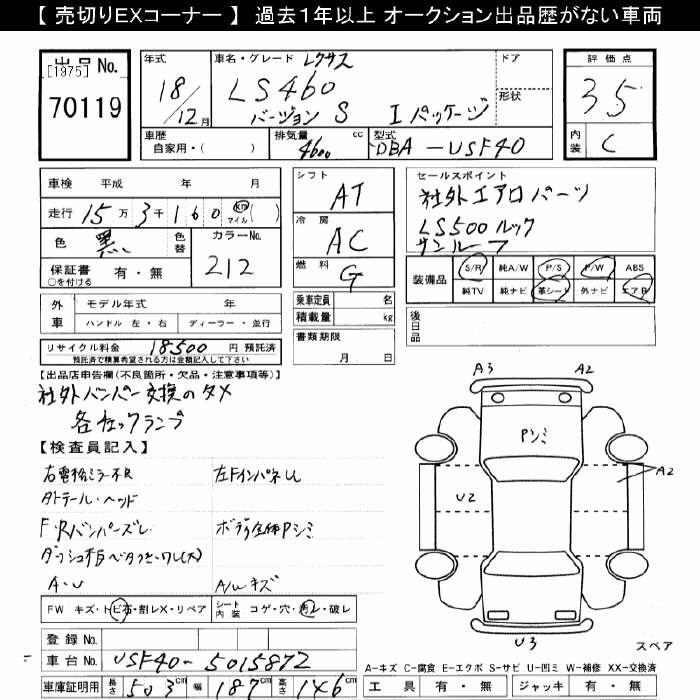 【 売切りEXコーナー 】 過去1年以上 オークション出品歴がない車両
出品 No.
[1975]
70119
年式
18/12月
車名・グレード レクサス
LS460
バージョン S Iパッケージ
ドア
形状
評価点
3.5
内装 C
車歴
自家用・( )
排気量 4600 cc
型式 DBA-USF40
車検 平成 年 月
走行 15万3千160 km マイル ( )
色 黒 色替
カラーNo. 212
保証書 有・無
○を付ける
シフト AT
冷房 AC
燃料 G
乗車定員 名
積載量 kg
書類期限
月 日
セールスポイント
社外エアロパーツ
LS500ルック
サンルーフ
装備品 S/R 純A/W P/S P/W ABS
純TV 純ナビ 革シート 外ナビ エアB
後日品
外車 モデル年式 年
ハンドル 左・右 ディーラー・並行
リサイクル料金 18,500 円 預託済
預託済で積算希望される方は金額記入して下さい
【出品店申告欄(不良箇所・欠品・注意事項等)】
社外バンパー交換のタメ
各チェックランプ
【検査員記入】
右電格ミラー不良 左Fインパネし
テール・ヘッド
F・Rバンパーズレ ボディ全体Pシミ
ダッシュ
A・U A/Wキズ
FW キズ・トビ石・割レX・リペア シート内装 コゲ・穴・スレ・破レ
登録 No.
車台 No. USF40-5015872
車庫証明用 長さ 503cm 幅 187cm 高さ 146
A3 A2
Pシミ
A2
U2
U3
スペア
A-キズ C-腐食 E-エクボ S-サビ U-凹ミ W-補修 XX-交換済
工具 有・無 ジャッキ 有・無